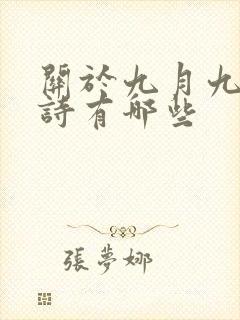 關於九月九
詩有哪些
張夢娜